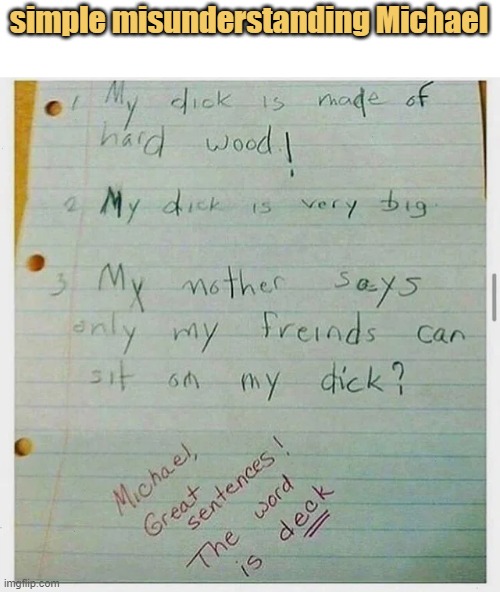 simple misunderstanding Michael
1 My dick is made of
hard wood.!
2 My dick is very big.
3 My mother says
only my freinds can
sit on my dick?
Michael,
Great
sentences!
The word
is deck
imgflip.com